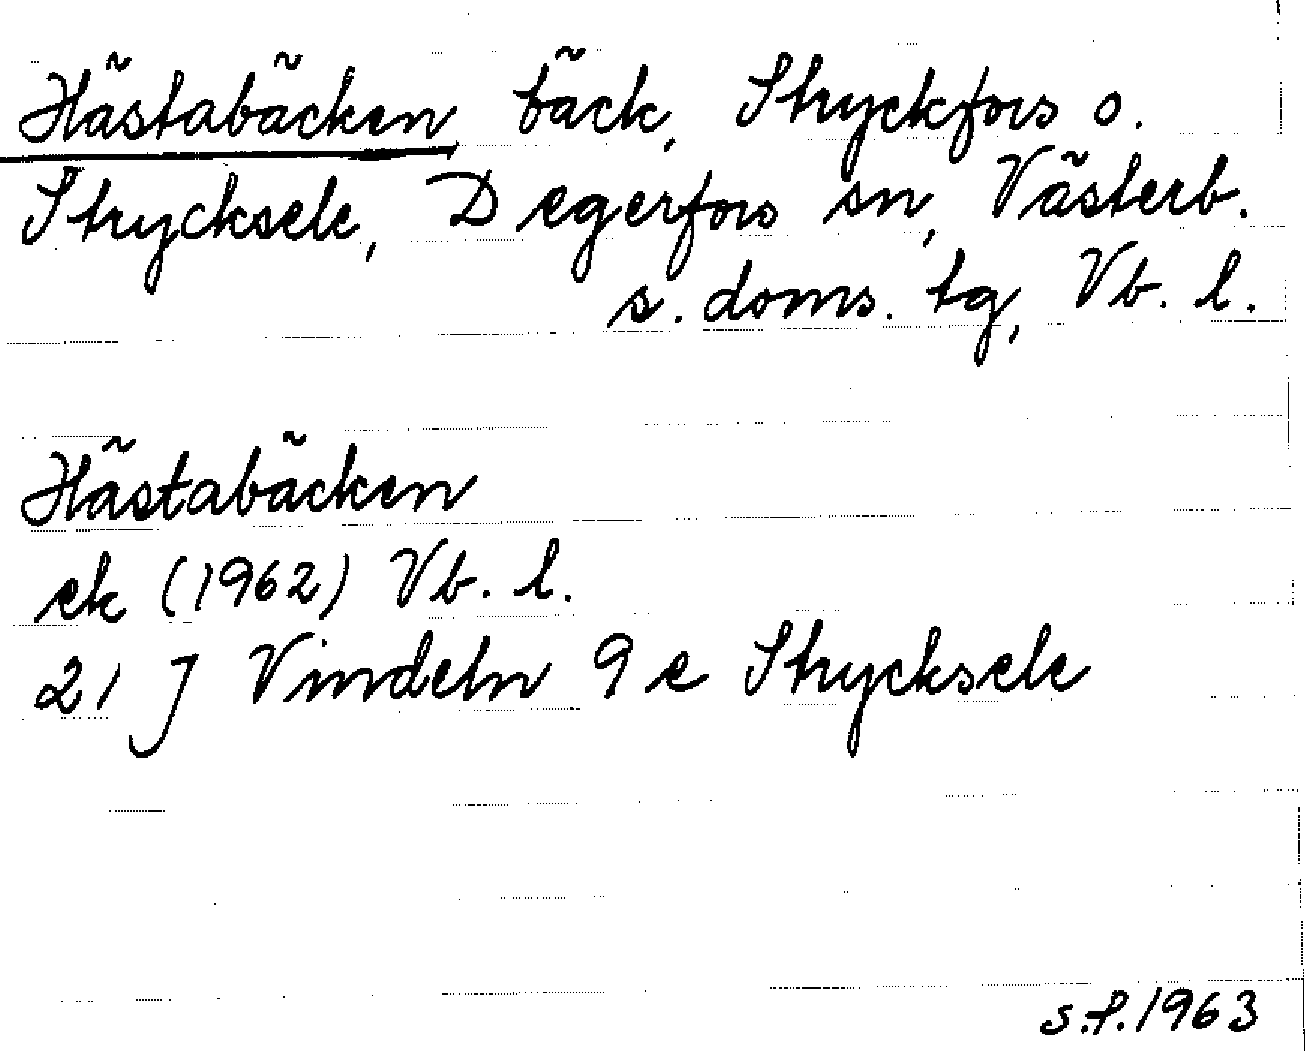 Hästabäcken, bäck, Stryckfors o.
Strycksele, Degerfors sn, Västerb.
s. doms. tg, Vb. l.
Hästabäcken
ek (1962) Vb. l.
21 J Vindeln 9 e Strycksele
s.f. 1963